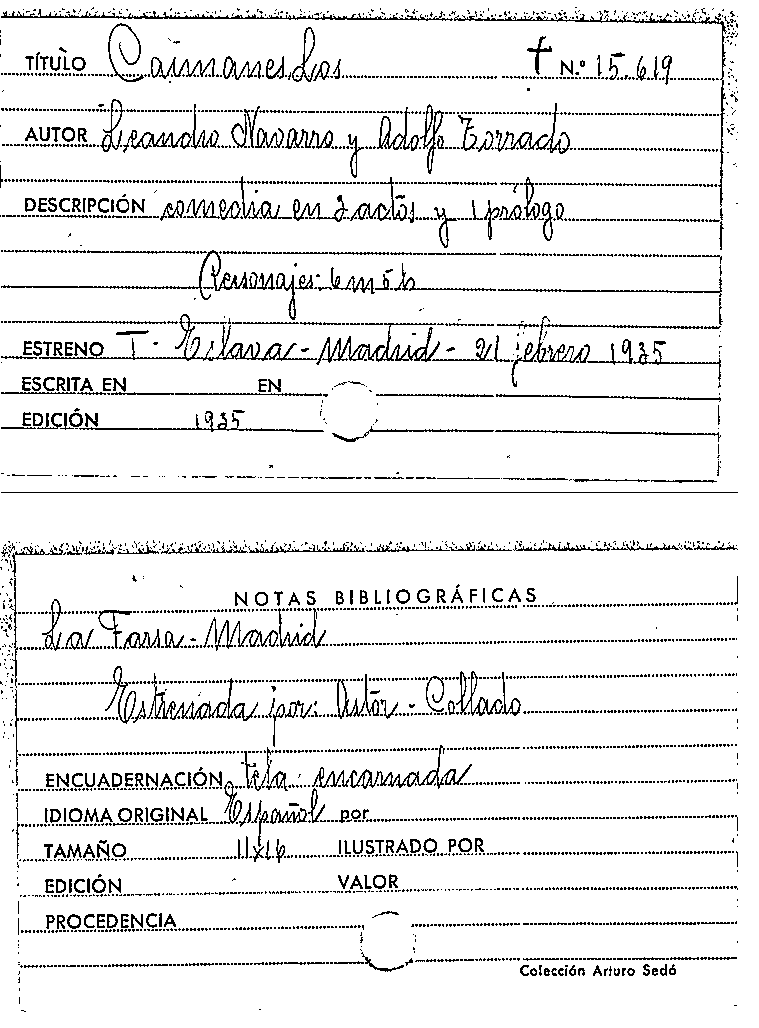 TÍTULO Caimanes, Los † N.º 15.619
AUTOR Leandro Navarro y Adolfo Torrado
DESCRIPCIÓN comedia en 2 actos y 1 prólogo
Personajes: 6 m 5 h
ESTRENO T. Eslava - Madrid - 21 febrero 1935
ESCRITA EN EN
EDICIÓN 1935
NOTAS BIBLIOGRÁFICAS
La Farsa - Madrid
Estrenada por: Astor - Collado
ENCUADERNACIÓN tela encarnada
IDIOMA ORIGINAL Español por
TAMAÑO 11x16 ILUSTRADO POR
EDICIÓN VALOR
PROCEDENCIA
Colección Arturo Sedó